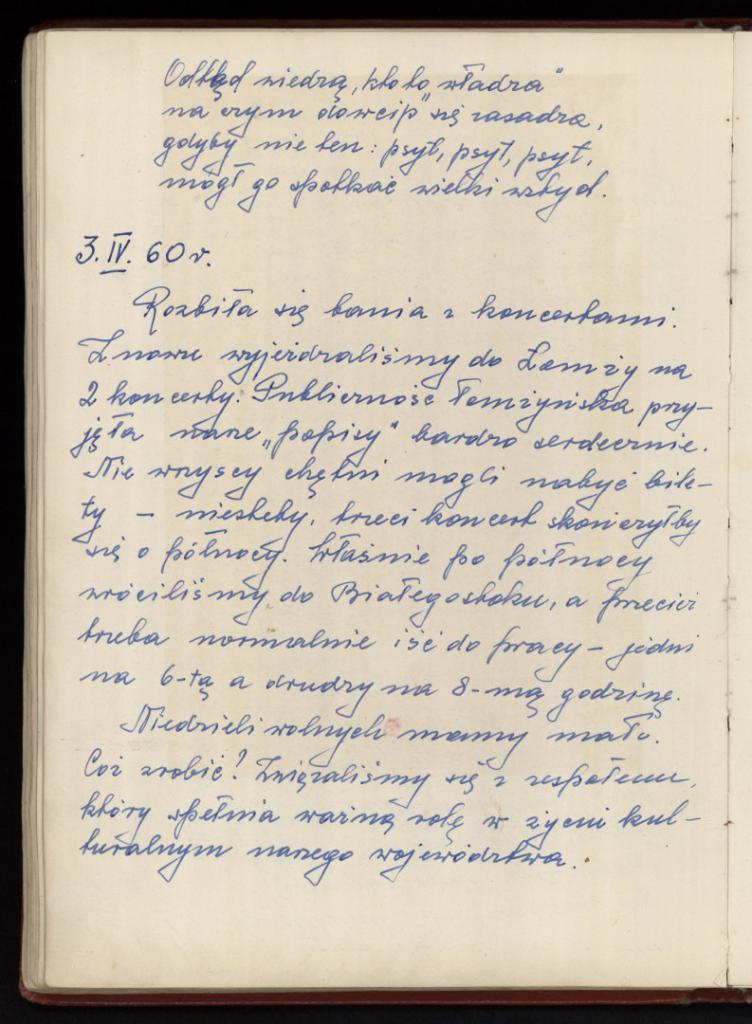 Odtąd wiedzą, kto to „władza”
na czym dowcip" się zasadza,
gdyby nie ten: psyt, psyt, psyt,
mógł go spotkać wielki wstyd.
3. IV. 60 r.
Rozbiła się bania z koncertami.
Znowu wyjeżdżaliśmy do Łomży na
2 koncerty. Publiczność łomżyńska przy-
jęła nasze „popisy" bardzo serdecznie.
Nie wszyscy chętni mogli nabyć bile-
ty – niestety, trzeci koncert skończyłby
się o północy. Właśnie po północy
wróciliśmy do Białegostoku, a przecież
trzeba normalnie iść do pracy – jedni
na 6-tą a drudzy na 8-mą godzinę.
Niedzieli wolnych mamy mało.
Cóż zrobić? Związaliśmy się z zespołem,
który spełnia ważną rolę w życiu kul-
turalnym naszego województwa.